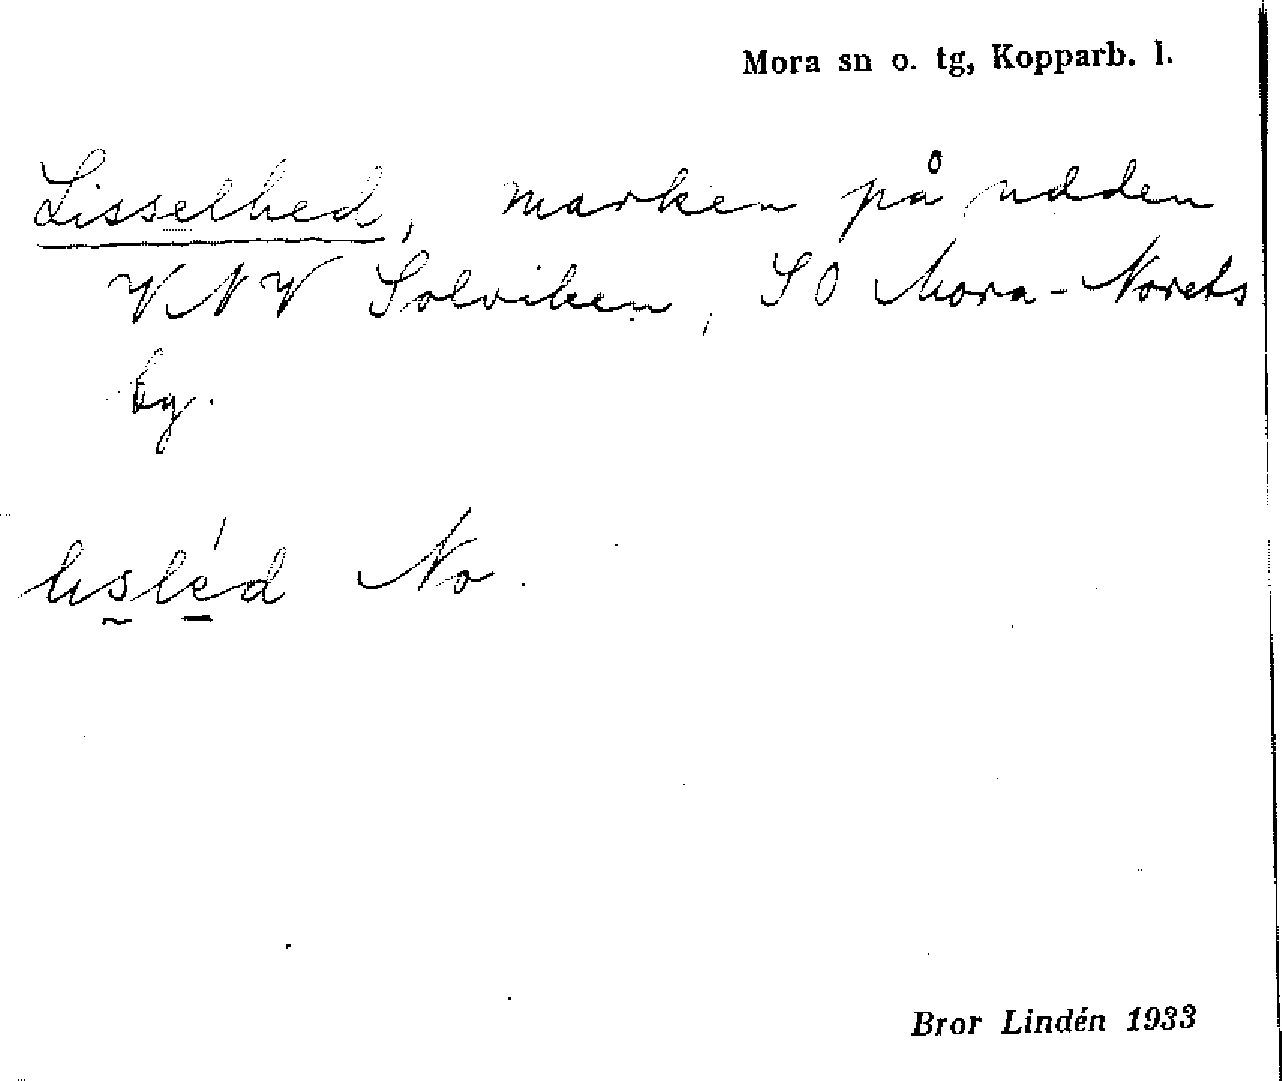 Mora sn o. tg, Kopparb. l.
Lisselhed, marken på udden
VNV Solviken, SO Mora-Norets
by.
lisléd No.
Bror Lindén 1933